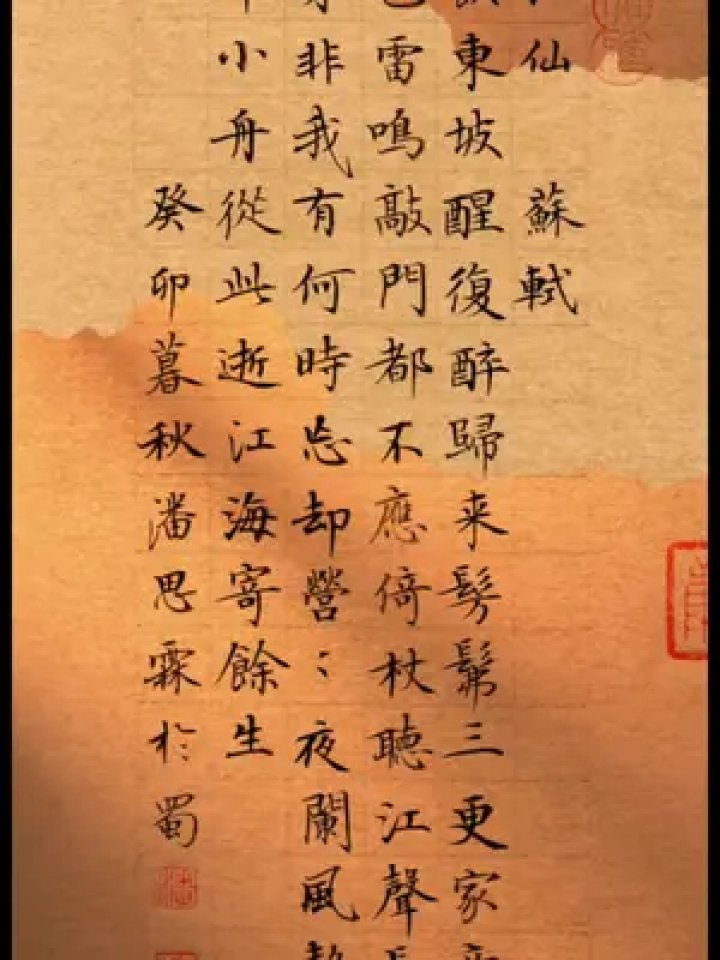 仙 蘇軾
東坡醒復醉歸来髣髴三更家
雷鳴敲門都不應倚杖聽江聲
非我有何時忘却營：夜闌風
小舟從此逝江海寄餘生
癸卯暮秋潘思霖於蜀